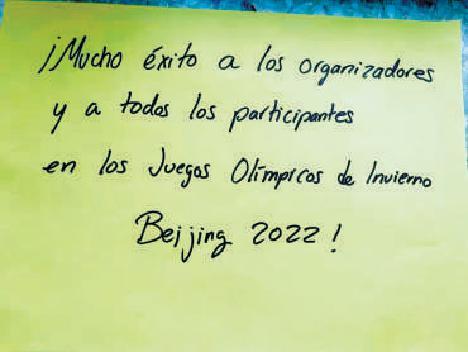 ¡Mucho éxito a los organizadores
y a todos los participantes
en los Juegos Olímpicos de Invierno
Beijing 2022!